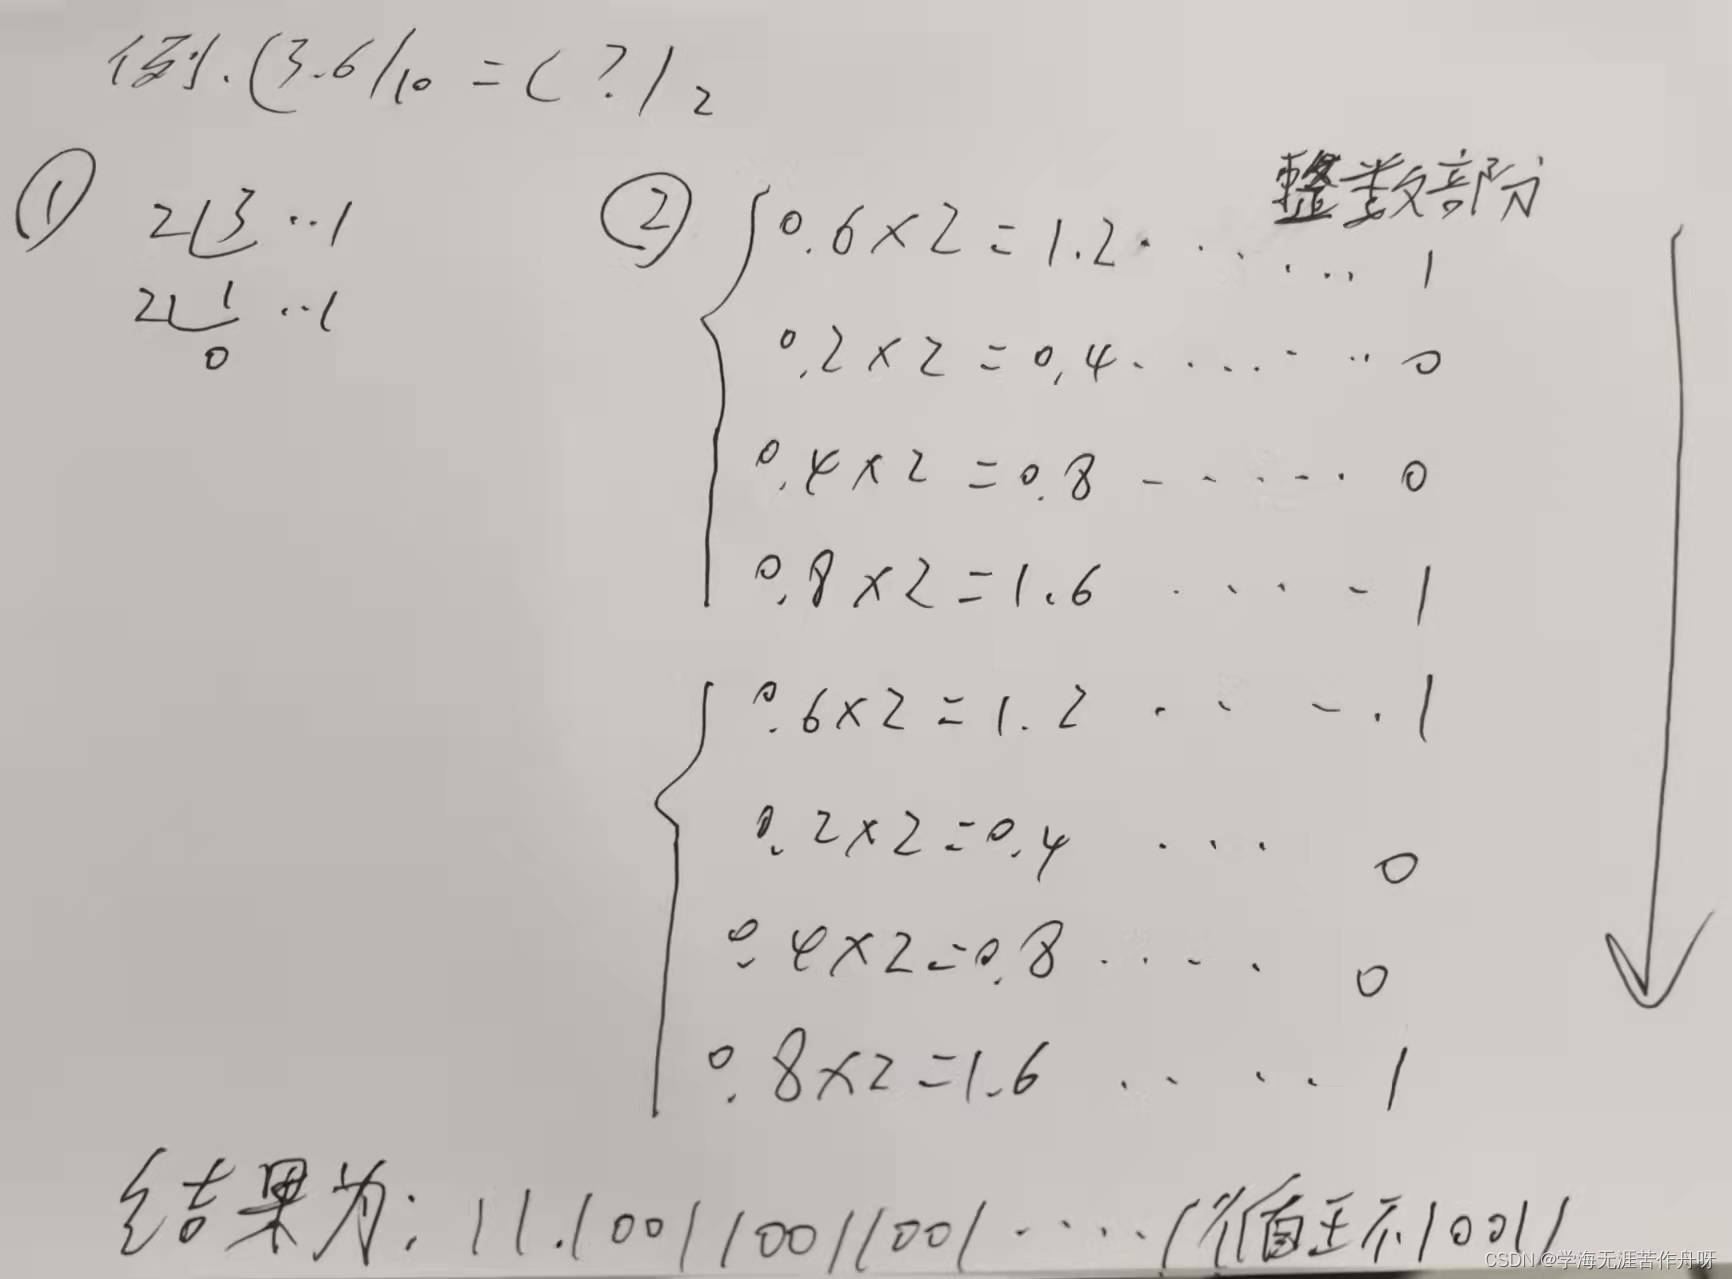 例.(3.6)10 = (?)2
① 2 3 ··1
2 1 ··1
0
② 整数部分
0.6×2=1.2········1
0.2×2=0.4········0
0.4×2=0.8 ····· 0
0.8×2=1.6 ···· 1
0.6×2=1.2 ···· 1
0.2×2=0.4 ··· 0
0.4×2=0.8 ···· 0
0.8×2=1.6 ···· 1
结果为: 11.100110011001 ····· (循 1001)
CSDN @学海无涯苦作舟呀